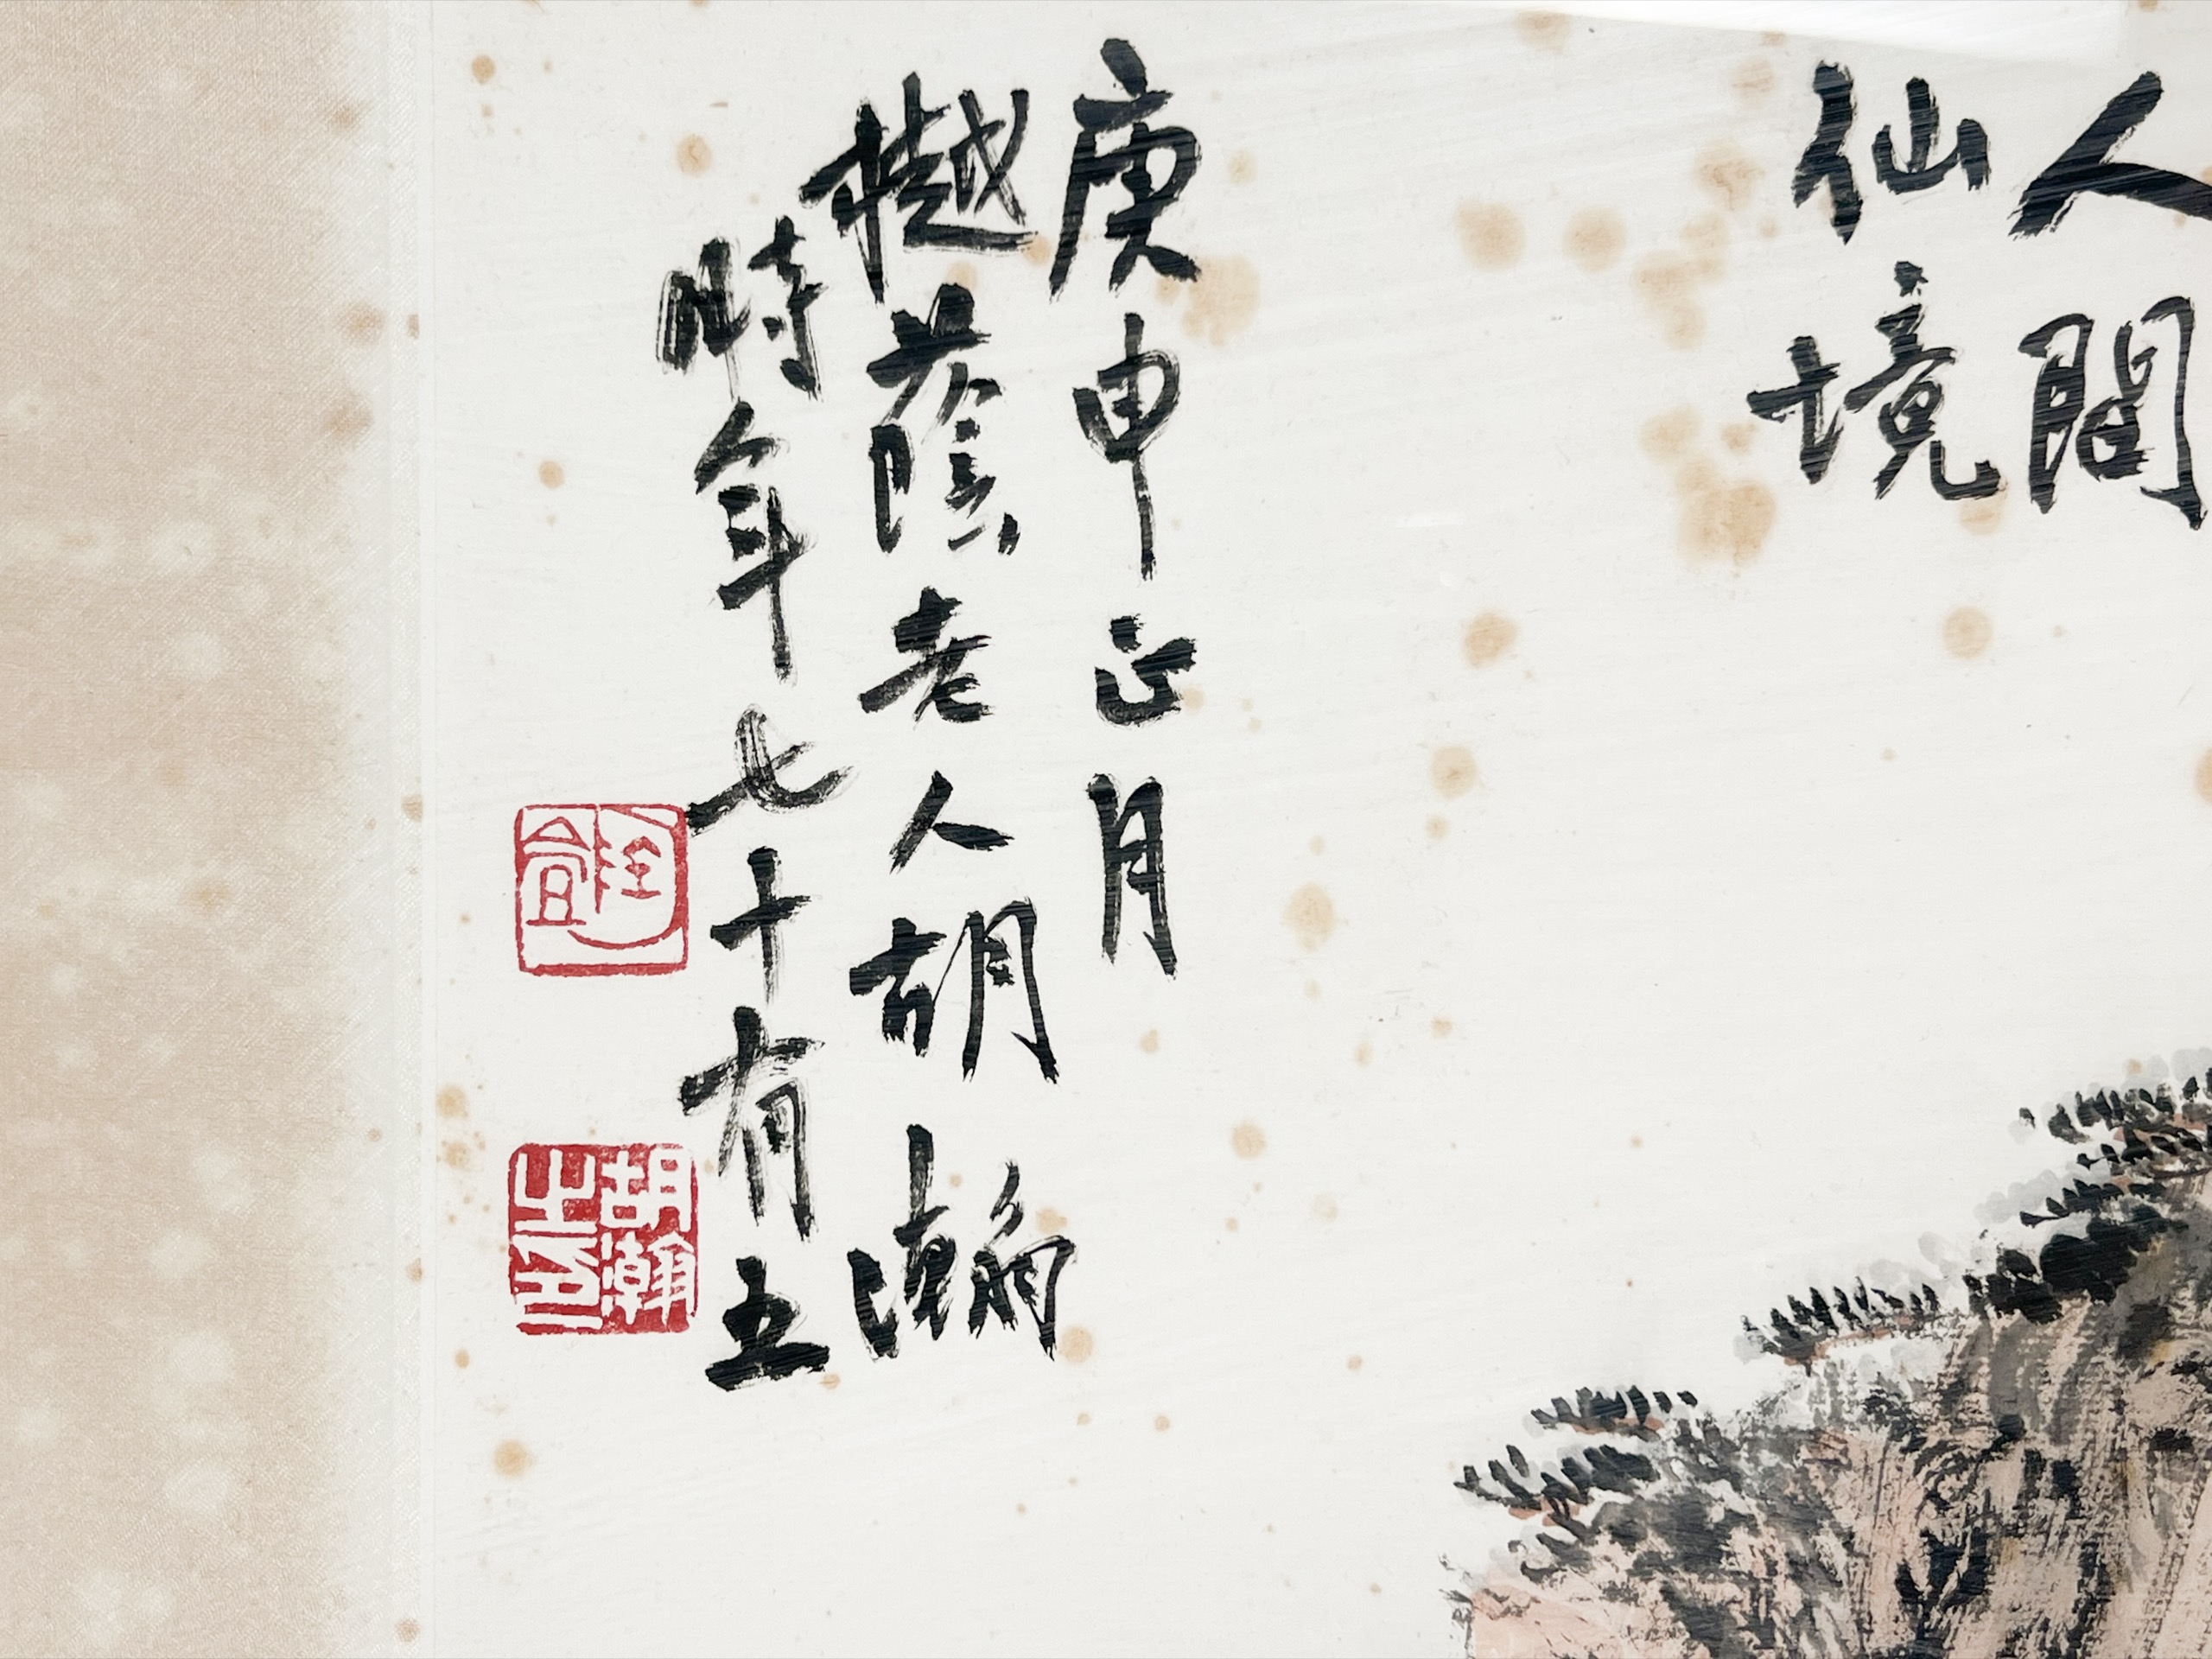 人間
仙境
庚申正月
樾蔭老人胡瀚
時年七十有五
胡瀚之印